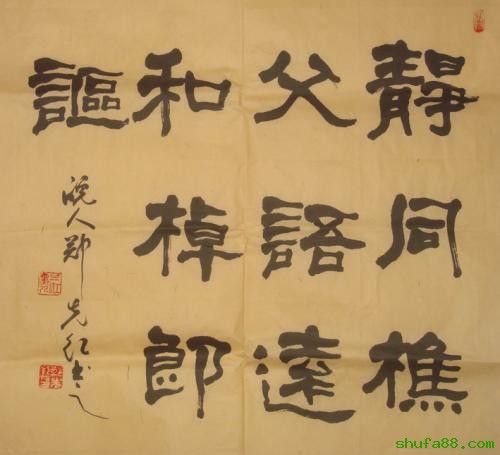 靜同樵
父語遠
和棹郎
謳
皖人郑先红书之
shufa88.com